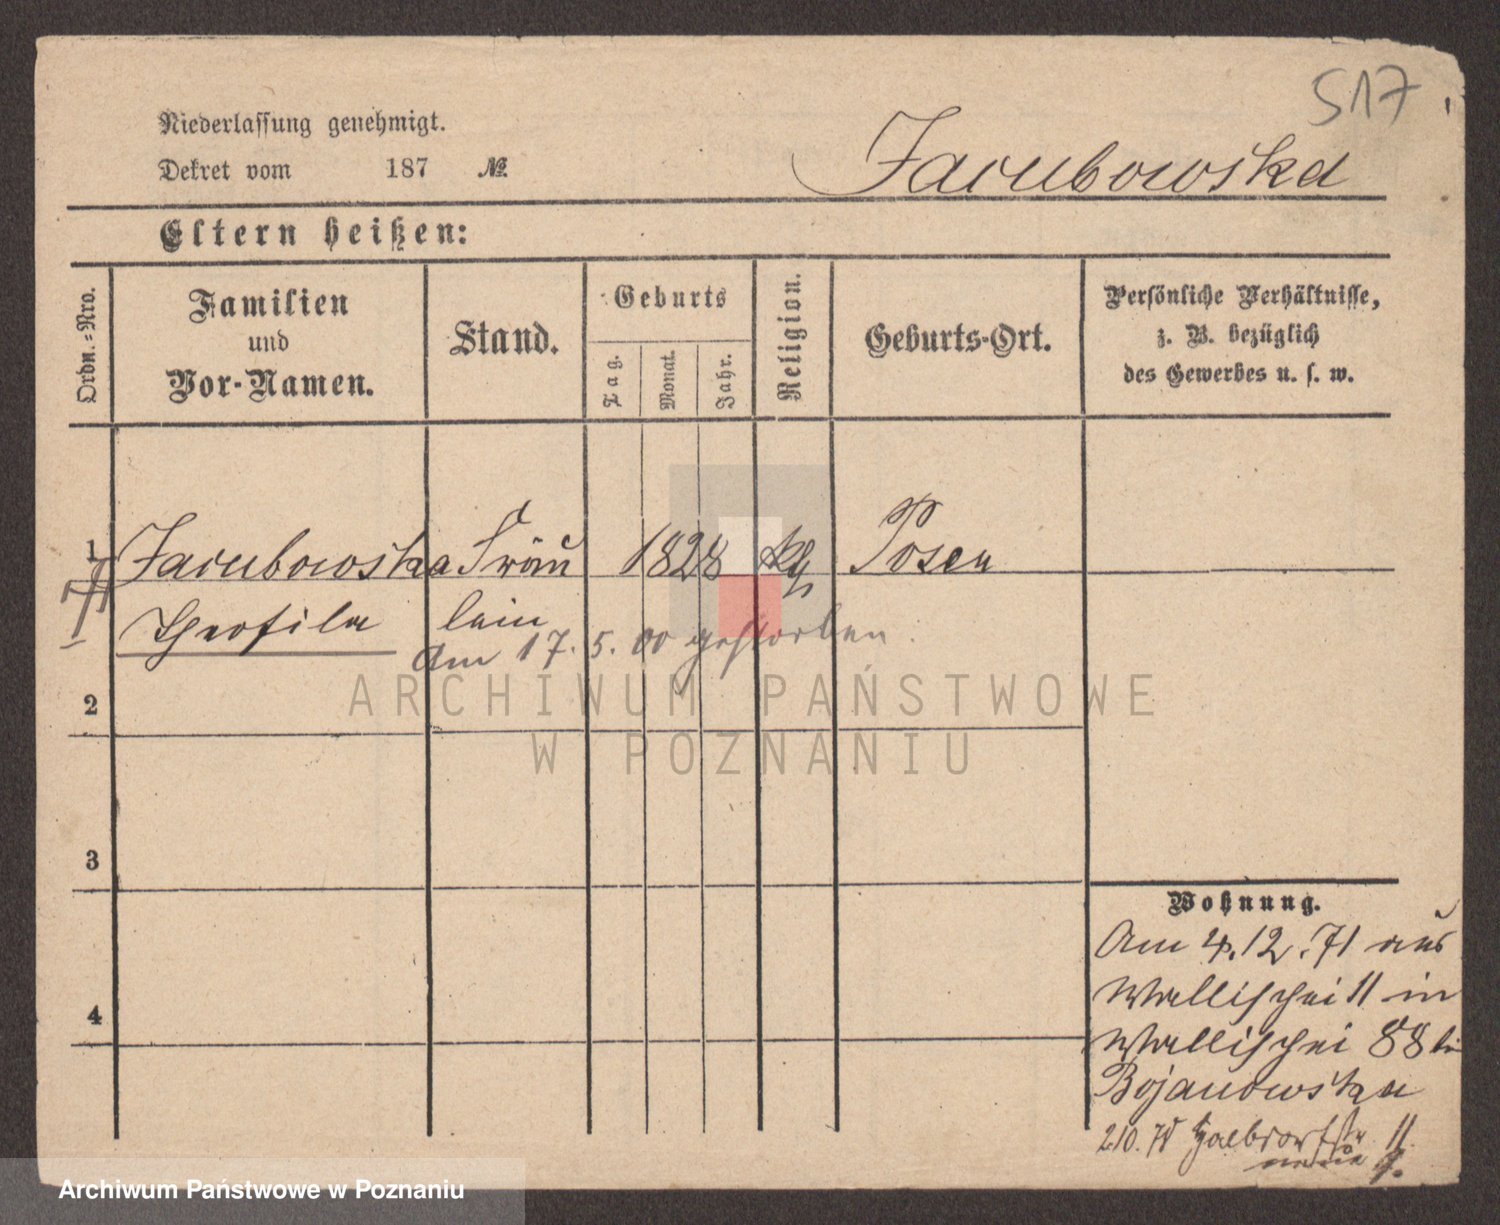 517
Niederlassung genehmigt.
Dekret vom 187 №
Jacubowska
Eltern heißen:
Ordn.-Nro.
Familien
und
Vor-Namen.
Stand.
Geburts
Tag.
Monat.
Jahr.
Religion.
Geburts-Ort.
Persönliche Verhältnisse,
z. B. bezüglich
des Gewerbes u. s. w.
1 Jacubowska Fräu 1828 kg Posen
Theofila lein
Am 17.5.00 gestorben.
ARCHIWUM PAŃSTWOWE
W POZNANIU
2
3
4
Wohnung.
Am 4.12.71 aus
Wallischei 11 in
Wallischei 88 bei
Bojanowska
2.10. Halbdorfstr. 11
Archiwum Państwowe w Poznaniu